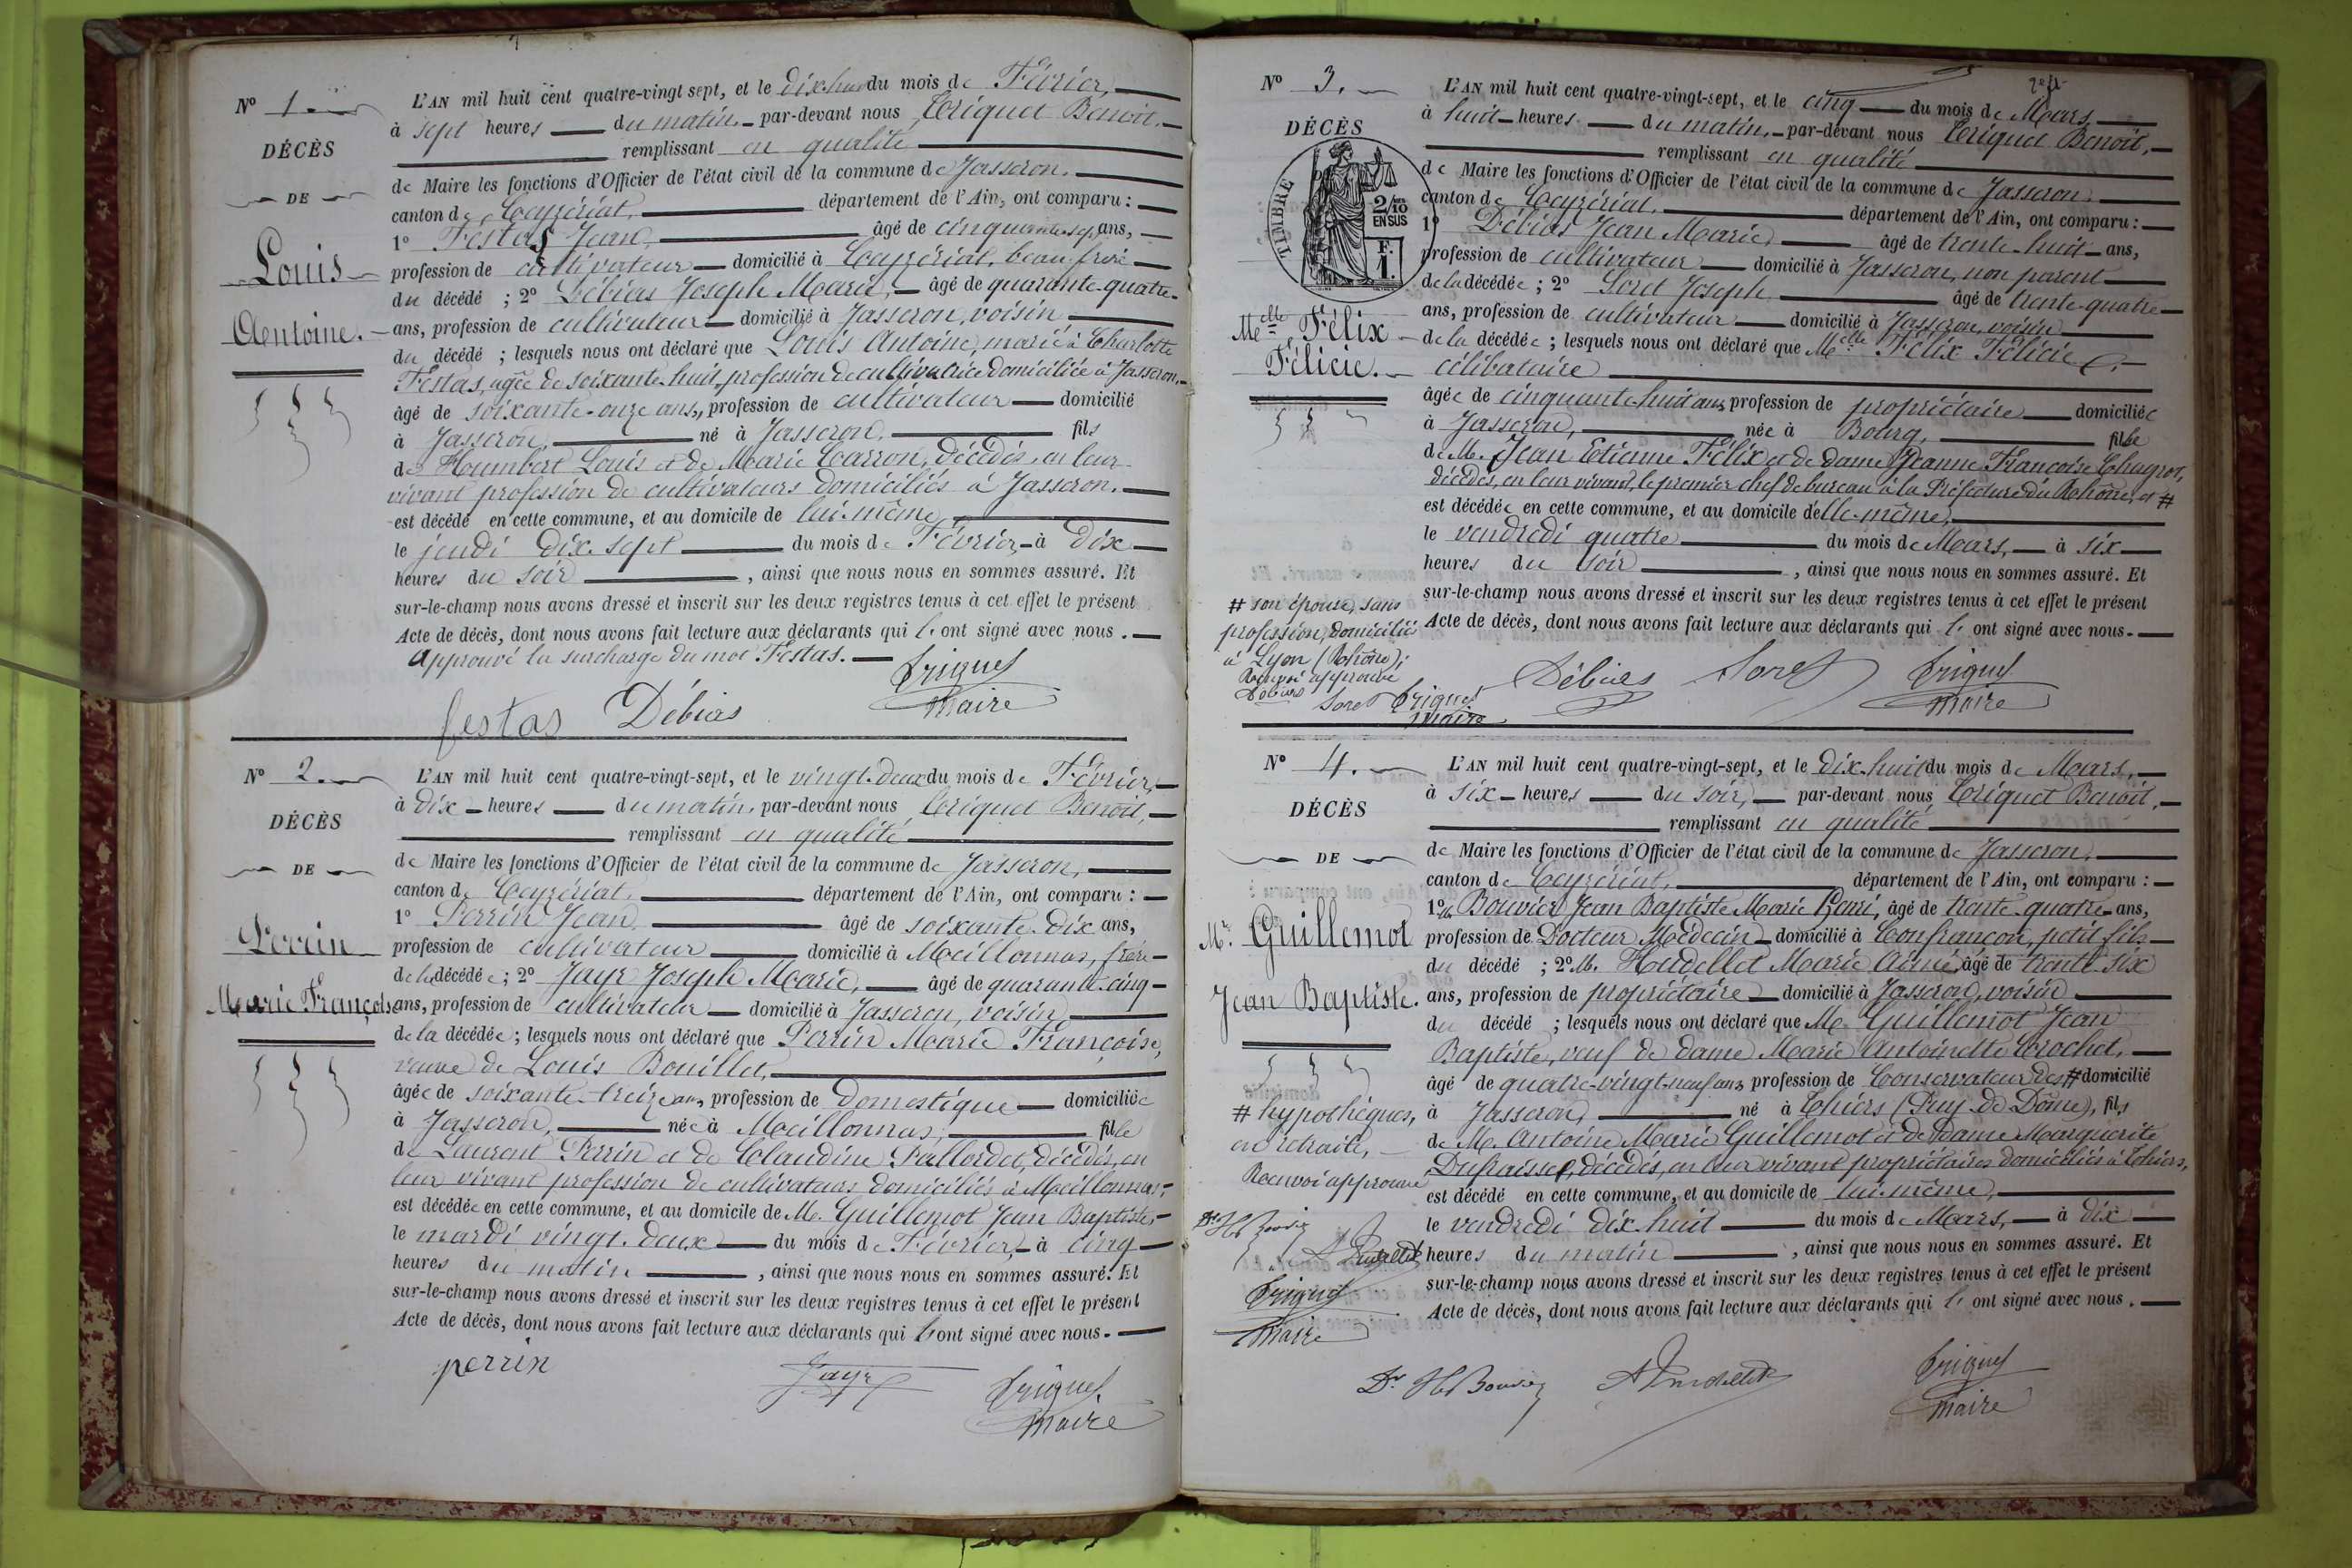 N° 1.
DÉCÈS
DE
Louis
Antoine.
L'AN mil huit cent quatre-vingt sept, et le dix-huit du mois de Février,
à sept heures du matin, par-devant nous Criquet Benoit,
remplissant en qualité
de Maire les fonctions d'Officier de l'état civil de la commune de Jasseron,
canton de Ceyzériat, département de l'Ain, ont comparu :
1° Festas Jean, âgé de cinquante-sept ans,
profession de cultivateur domicilié à Ceyzériat, beau-frère
du décédé ; 2° Débias Joseph Marie, âgé de quarante-quatre
ans, profession de cultivateur domicilié à Jasseron, voisin
du décédé ; lesquels nous ont déclaré que Louis Antoine, marié à Charlotte
Festas, agée de soixante-huit, profession de cultivatrice domiciliée à Jasseron,
âgé de soixante-onze ans, profession de cultivateur domicilié
à Jasseron, né à Jasseron, fils
de Humbert Louis et de Marie Carron, décédés, en leur
vivant profession de cultivateurs domiciliés à Jasseron.
est décédé en cette commune, et au domicile de lui-même,
le jeudi dix-sept du mois de Février, à dix
heures du soir, ainsi que nous nous en sommes assuré. Et
sur-le-champ nous avons dressé et inscrit sur les deux registres tenus à cet effet le présent
Acte de décès, dont nous avons fait lecture aux déclarants qui l'ont signé avec nous.
Approuvé la surcharge du mot Festas.
festas Débias Criquet
Maire
N° 2.
DÉCÈS
DE
Perrin
Marie Françoise
L'AN mil huit cent quatre-vingt-sept, et le vingt-deux du mois de Février,
à dix heures du matin, par-devant nous Criquet Benoit,
remplissant en qualité
de Maire les fonctions d'Officier de l'état civil de la commune de Jasseron,
canton de Ceyzériat, département de l'Ain, ont comparu :
1° Perrin Jean, âgé de soixante-dix ans,
profession de cultivateur domicilié à Meillonnas, frère
de la décédée ; 2° Jayr Joseph Marie, âgé de quarante-cinq
ans, profession de cultivateur domicilié à Jasseron, voisin
de la décédée ; lesquels nous ont déclaré que Perrin Marie Françoise,
veuve de Louis Bouillet,
âgée de soixante-treize ans, profession de Domestique domiciliée
à Jasseron, née à Meillonnas, fille
de Laurent Perrin et de Claudine Pallordet, décédés, en
leur vivant profession de cultivateurs domiciliés à Meillonnas,
est décédée en cette commune, et au domicile de M. Guillemot Jean Baptiste,
le mardi vingt-deux du mois de Février, à cinq
heures du matin, ainsi que nous nous en sommes assuré. Et
sur-le-champ nous avons dressé et inscrit sur les deux registres tenus à cet effet le présent
Acte de décès, dont nous avons fait lecture aux déclarants qui l'ont signé avec nous.
perrin Jayr Criquet
Maire
N° 3.
DÉCÈS
DE
TIMBRE
2/10 EN SUS
F. 1.
Melle Félix
Félicie.
L'AN mil huit cent quatre-vingt-sept, et le cinq du mois de Mars,
à huit heures du matin, par-devant nous Criquet Benoit,
remplissant en qualité
de Maire les fonctions d'Officier de l'état civil de la commune de Jasseron,
canton de Ceyzériat, département de l'Ain, ont comparu :
1° Débias Jean Marie, âgé de trente-huit ans,
profession de cultivateur domicilié à Jasseron, non parent
de la décédée ; 2° Soret Joseph, âgé de trente-quatre
ans, profession de cultivateur domicilié à Jasseron, voisin
de la décédée ; lesquels nous ont déclaré que Melle Félix Félicie
célibataire
âgée de cinquante-huit ans, profession de propriétaire domiciliée
à Jasseron, née à Bourg, fille
de M. Jean Etienne Félix et de dame Jeanne Françoise Chagrot,
décédés, en leur vivant, le premier chef de bureau à la Préfecture du Rhône, et #
est décédée en cette commune, et au domicile d'elle-même,
le vendredi quatre du mois de Mars, à six
heures du soir, ainsi que nous nous en sommes assuré. Et
sur-le-champ nous avons dressé et inscrit sur les deux registres tenus à cet effet le présent
Acte de décès, dont nous avons fait lecture aux déclarants qui l'ont signé avec nous.
# son épouse, sans
profession, domiciliés
à Lyon (Rhône);
Renvoi approuvé
Débias Soret Criquet
Maire
Débias Soret Criquet
Maire
N° 4.
DÉCÈS
DE
Mr. Guillemot
Jean Baptiste.
L'AN mil huit cent quatre-vingt-sept, et le dix-huit du mois de Mars,
à six heures du soir, par-devant nous Criquet Benoit,
remplissant en qualité
de Maire les fonctions d'Officier de l'état civil de la commune de Jasseron,
canton de Ceyzériat, département de l'Ain, ont comparu :
1° M. Bouvier Jean Baptiste Marie Henri, âgé de trente-quatre ans,
profession de Docteur Médecin domicilié à Confrançon, petit-fils
du décédé ; 2° M. Hudellet Marie Aimé, âgé de trente-six
ans, profession de propriétaire domicilié à Jasseron, voisin
du décédé ; lesquels nous ont déclaré que M. Guillemot Jean
Baptiste, veuf de dame Marie Antoinette Crochet,
âgé de quatre-vingt-neuf ans, profession de Conservateur des # domicilié
à Jasseron, né à Thiers (Puy-de-Dôme), fils
de M. Antoine Marie Guillemot et de dame Marguerite
Dufraisse, décédés, en leur vivant propriétaires domiciliés à Thiers,
est décédé en cette commune, et au domicile de lui-même,
le vendredi dix-huit du mois de Mars, à dix
heures du matin, ainsi que nous nous en sommes assuré. Et
sur-le-champ nous avons dressé et inscrit sur les deux registres tenus à cet effet le présent
Acte de décès, dont nous avons fait lecture aux déclarants qui l'ont signé avec nous.
# hypothèques,
en retraite,
Renvoi approuvé
Dr Hri Bouvier
A Hudellet
Criquet
Maire
Dr. Hri Bouvier A Hudellet Criquet
Maire